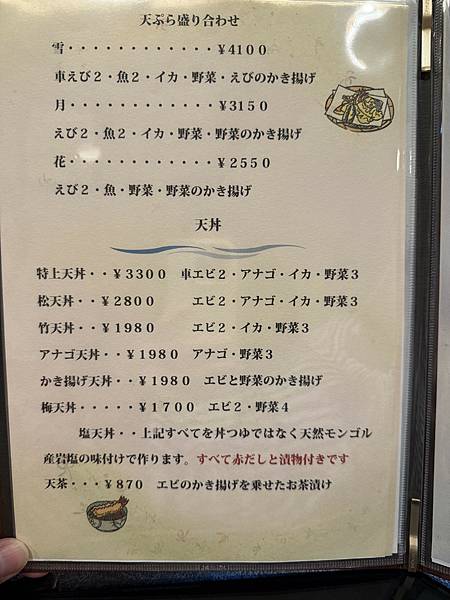 天ぷら盛り合わせ
雪・・・・・・・・・・・・¥4100
車えび２・魚２・イカ・野菜・えびのかき揚げ
月・・・・・・・・・・・・¥3150
えび２・魚２・イカ・野菜・野菜のかき揚げ
花・・・・・・・・・・・・¥2550
えび２・魚・野菜・野菜のかき揚げ
天丼
特上天丼・・¥3300 車エビ２・アナゴ・イカ・野菜３
松天丼・・¥2800 エビ２・アナゴ・イカ・野菜３
竹天丼・・¥1980 エビ２・イカ・野菜３
アナゴ天丼・・¥1980 アナゴ・野菜３
かき揚げ天丼・・¥1980 エビと野菜のかき揚げ
梅天丼・・・・・¥1700 エビ２・野菜４
塩天丼・・上記すべてを丼つゆではなく天然モンゴル
産岩塩の味付けで作ります。すべて赤だしと漬物付きです
天茶・・・¥870 エビのかき揚げを乗せたお茶漬け